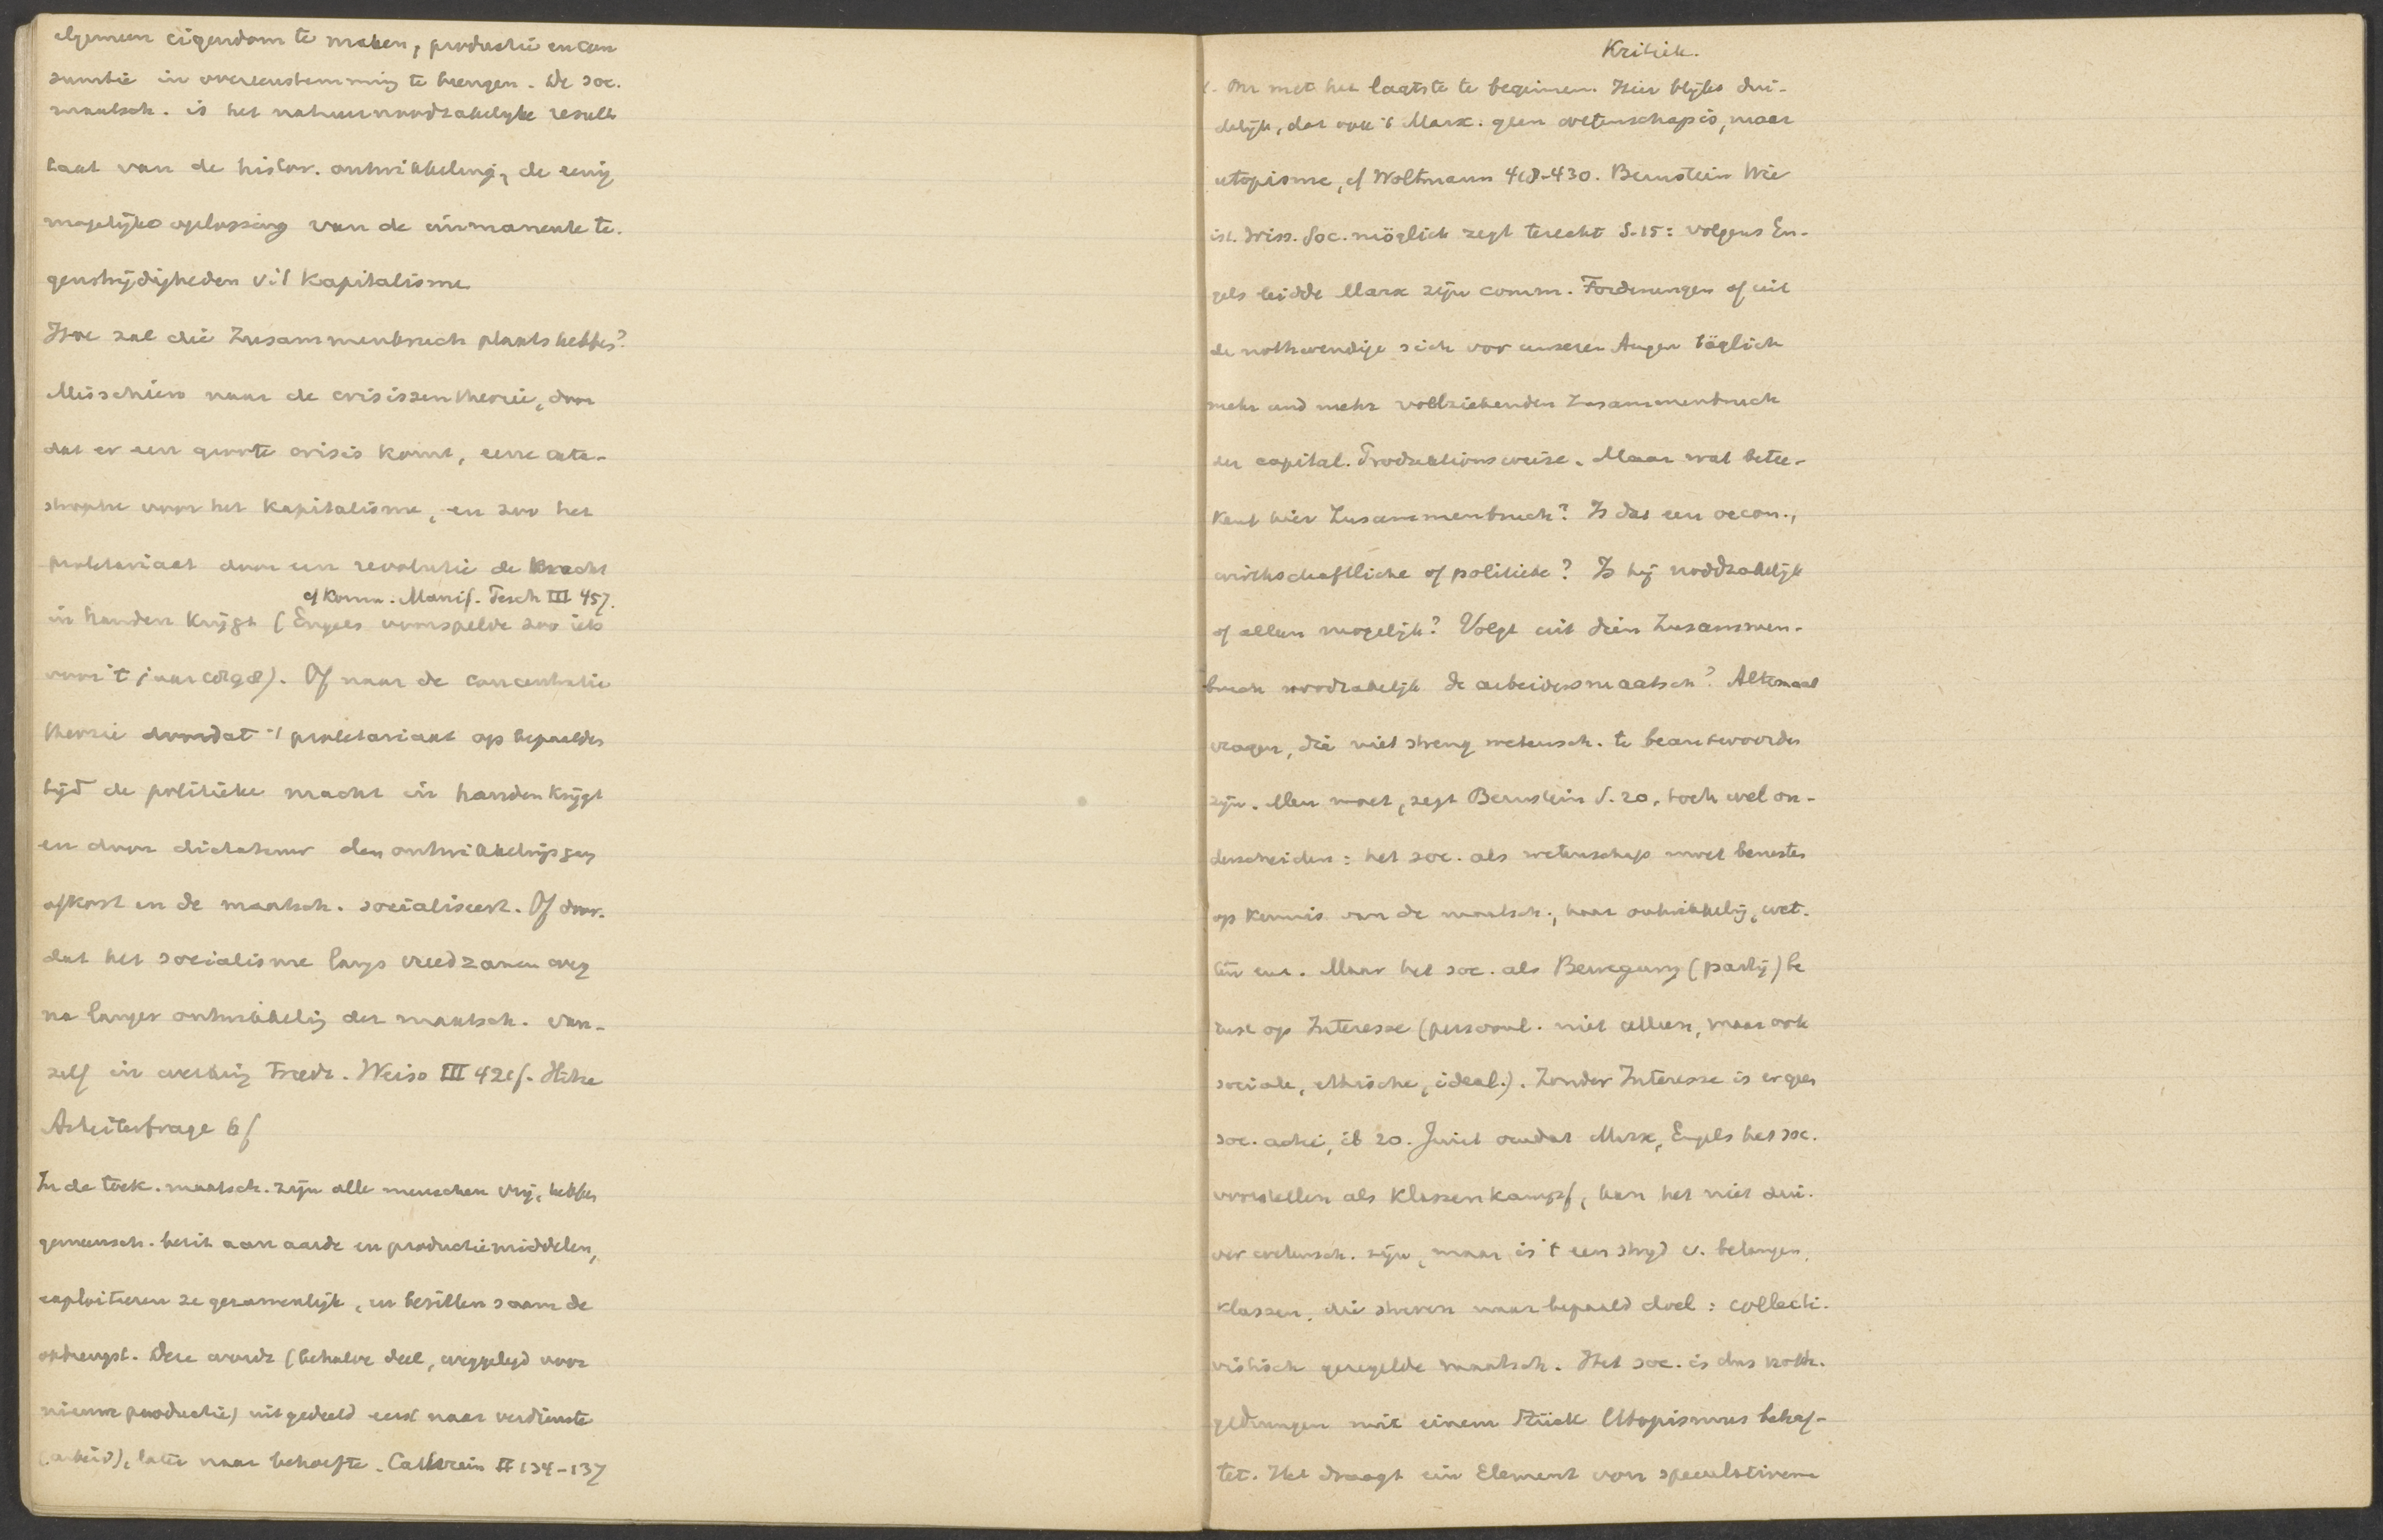 algemeen eigendom te maken, productie en con
sumtie in overeenstemming te brengen. De soc.
maatsch. is het natuurnoodzakelijke resul
taat van de histor. ontwikkeling, de eenig
mogelijke oplossing van de immanente te.
genstrijdigheden v.'t Kapitalisme
Hoe zal die Zusammenbruch plaats hebben?
Misschien naar de crisissentheorie, door
dat er een groote crisis komt, eene cata-
strophe voor het Kapitalisme, en zoo het
proletariaat door een revolutie de kracht
cf Komm. Manif. Pesch III 457.
in handen krijgt (Engels voorspelde zoo iets
voor 't jaar 1898). Of naar de concentratie
theorie doordat 't proletariaat op bepaalden
tijd de politieke macht in handen krijgt
en door dictatuur den ontwikkelingsgang
afkort en de maatsch. socialiseert. Of door.
dat het socialisme langs vreedzamen weg
na langer ontwikkeling der maatsch. van-
zelf in werking treedt. Weiss III 42 cf. Hitze
Arbeiterfrage 6f
In de toek. maatsch. zijn alle menschen vrij, hebben
gemeensch. bezit aan aarde en productiemiddelen,
exploiteeren ze gezamenlijk, en bezitten saam de
opbrengst. Deze wordt (behalve deel, weggelegd voor
nieuwe productie) uitgedeeld eerst naar verdienste
(arbeid), later naar behoefte. Cathrein II 134-137
Kritiek.
Om met het laatste te beginnen. Hier blijkt dui-
delijk, dat ook 't Marx. geen wetenschap is, maar
utopisme, cf Woltmann 418-430. Bernstein Wie
ist. wiss. Soc. möglich zegt terecht S. 15: volgens En-
gels leidde Marx zijn comm. Forderungen af uit
de nothwendige sich vor unseren Augen täglich
mehr und mehr vollziehenden Zusammenbruch
der capital. Produktionsweise. Maar wat betee-
kent hier Zusammenbruch? Is dat een oecon.,
wirthschaftliche of politieke? Is hij noodzakelijk
of alleen mogelijk? Volgt uit dien Zusammen-
bruch noodzakelijk de arbeidersmaatsch? Altemaal
vragen, die niet streng wetensch. te beantwoorden
zijn. Men moet, zegt Bernstein S. 20, toch wel on-
derscheiden: het soc. als wetenschap moet berusten
op kennis van de maatsch., haar ontwikkeling, wet-
ten enz. Maar het soc. als Bewegung (partij) be
rust op Interesse (persoonl. niet alleen, maar ook
sociale, ethische, ideal.). Zonder Interesse is er geen
soc. actie, ib 20. Juist omdat Marx, Engels het soc.
voorstellen als Klassenkampf, kan het niet zui-
ver wetensch. zijn, maar is 't een strijd v. belangen,
klassen, die streven naar bepaald doel: collecti-
vistisch geregelde maatsch. Het soc. is dus noth-
gedrungen mit einem Stück Utopismus behaf-
tet. Het draagt ein Element von speculativem